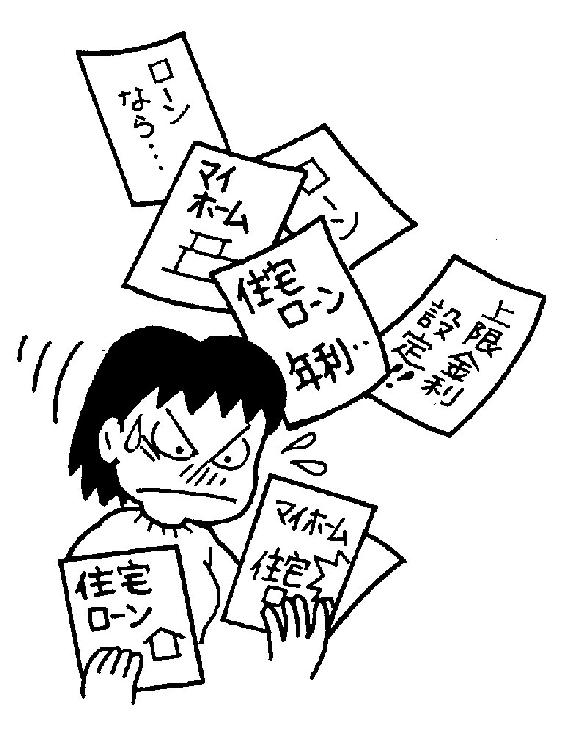 ローン
なら・・・
マイ
ホーム
ローン
住宅
ローン
年利・・
上限金利
設定!!
マイホーム
住宅
住宅
ローン